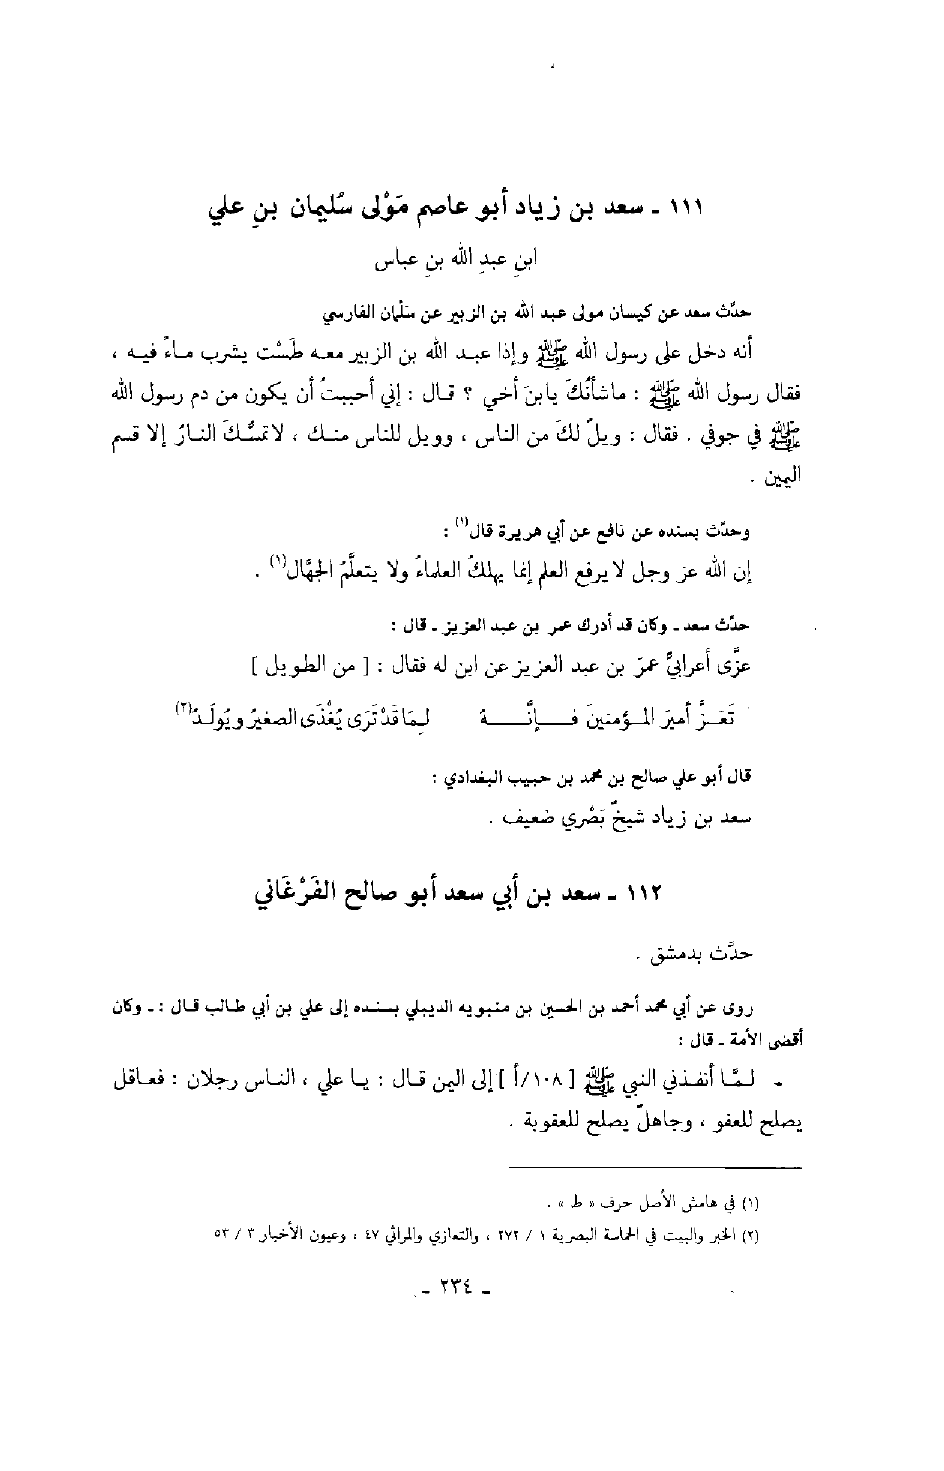 ١١١ ـ سعد بن زياد أبو عاصم مَوْلى سُليمان بنِ علي
ابنِ عبدِ الله بنِ عباس
حدّث سعد عن كيسان مولى عبد الله بن الزبير عن سَلْمان الفارسي
أنه دخل على رسول الله ﷺ وإذا عبد الله بن الزبير معه طَسْت يشرب ماءً فيه ،
فقال رسول الله ﷺ : ماشأنُكَ يابنَ أخي ؟ قال : إني أحببتُ أن يكون من دم رسول الله
ﷺ في جوفي . فقال : ويلٌ لكَ من الناس ، وويل للناس منك ، لاتمسُّكَ النارُ إلا قسم
اليمين .
وحدّث بسنده عن نافع عن أبي هريرة قال(١) :
إن الله عز وجل لا يرفع العلم إنما يهلكُ العلماءُ ولا يتعلَّمُ الجهَّال(١) .
حدّث سعد ـ وكان قد أدرك عمر بن عبد العزيز ـ قال :
عزَّى أعرابيٌّ عمرَ بن عبد العزيز عن ابن له فقال : [ من الطويل ]
تَعَزَّ أميرَ المؤمنينَ فإنَّه لِمَا قَدْ تَرَى يُغْذَى الصغيرُ ويُولَدُ(٢)
قال أبو علي صالح بن محمد بن حبيب البغدادي :
سعد بن زياد شيخٌ بَصْري ضعيف .
١١٢ ـ سعد بن أبي سعد أبو صالح الفَرْغَاني
حدَّث بدمشق .
روى عن أبي محمد أحمد بن الحسين بن منبويه الديبلي بسنده إلى علي بن أبي طالب قال : ـ وكان
أقضى الأمة ـ قال :
ـ لمَّا أنفذني النبي ﷺ [ ١٠٨/أ ] إلى اليمن قال : يا علي ، الناس رجلان : فعاقل
يصلح للعفو ، وجاهلٌ يصلح للعقوبة .
(١) في هامش الأصل حرف « ط » .
(٢) الخبر والبيت في الحماسة البصرية ١ / ٢٧٢ ، والتعازي والمراثي ٤٧ ، وعيون الأخبار ٣ / ٥٣
ـ ٢٣٤ ـ